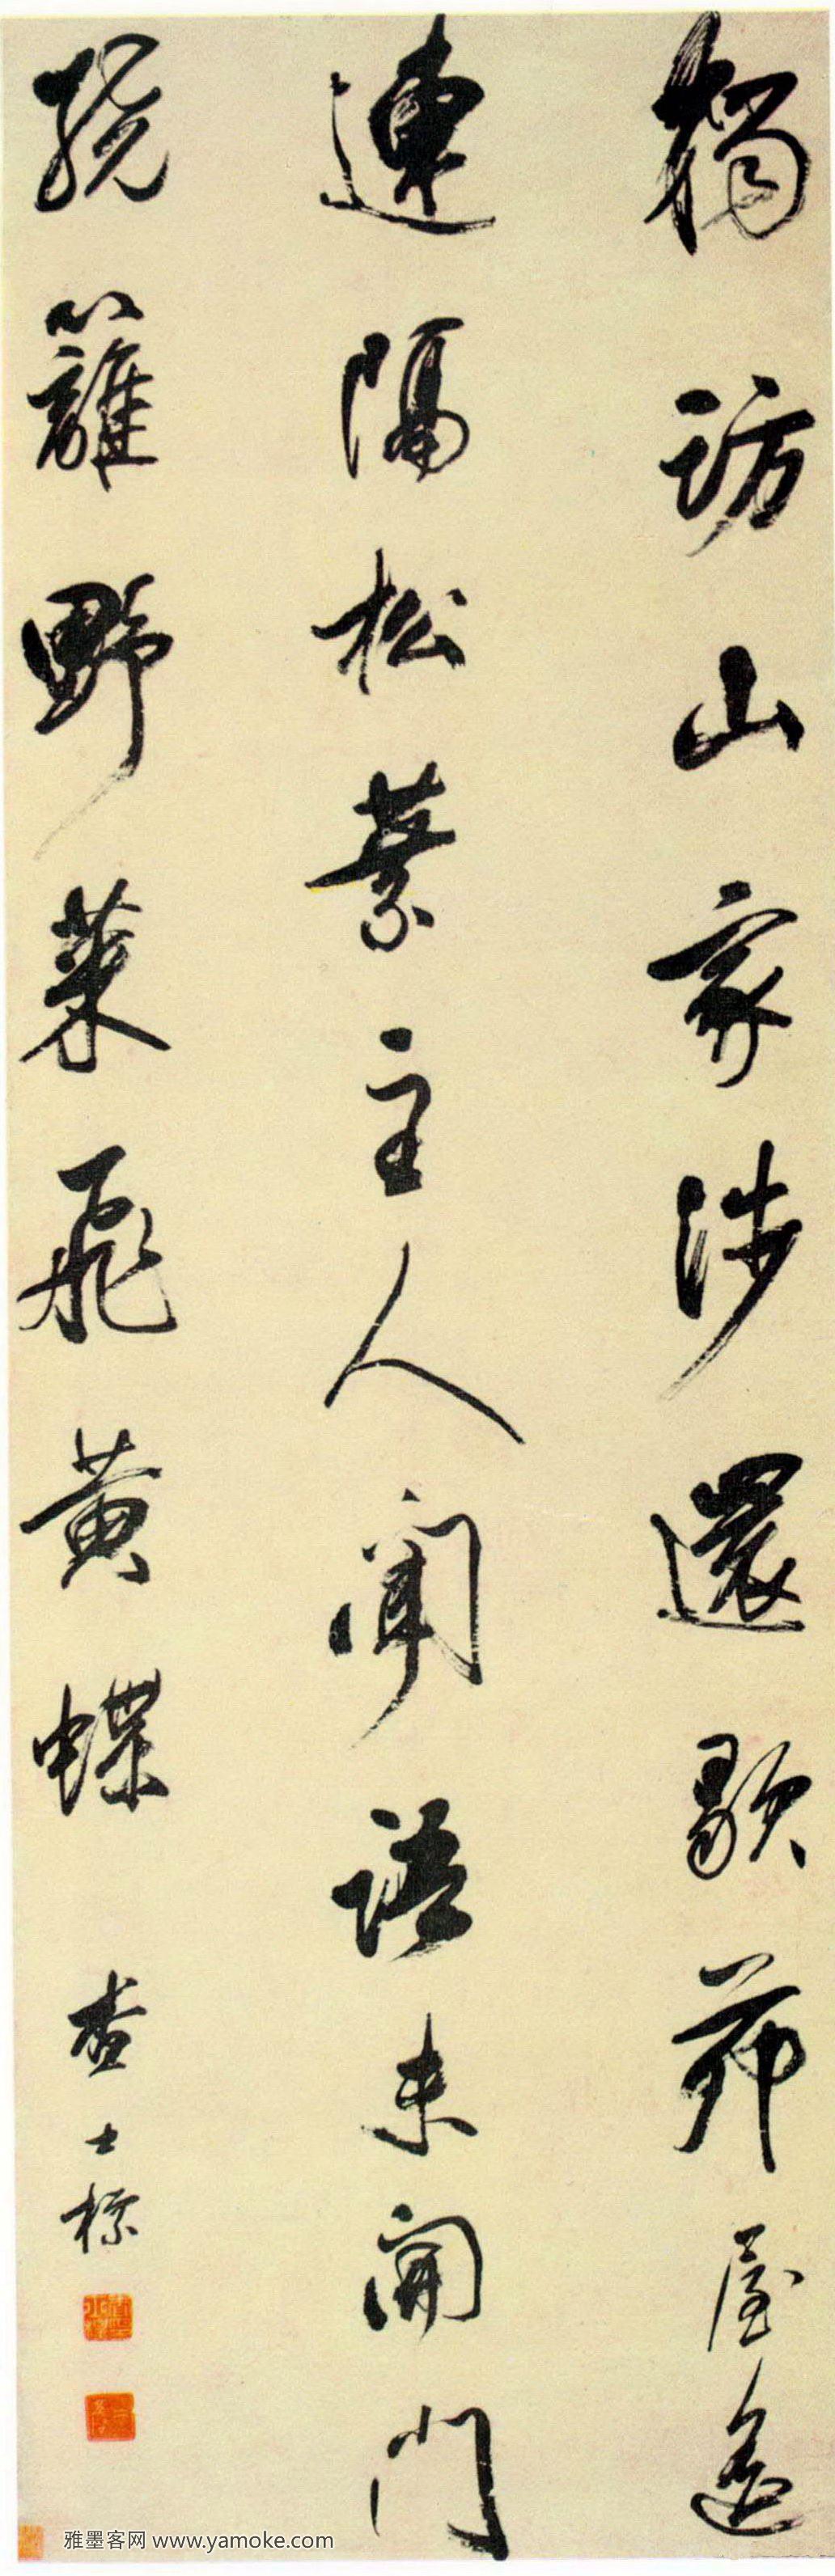 獨訪山家涉還歇茆屋遙
連隔松葉主人聞語未開門
繞籬野菜飛黃蝶
查士標
雅墨客网 www.yamoke.com